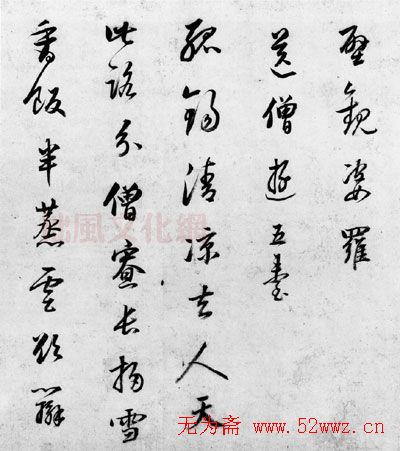 壁觀婆羅
送僧遊五臺
錫清涼去人天
此路分僧寮長掃雪
香飯半蒸雲欲辨
風文化網
无为斋 www.52wwz.cn